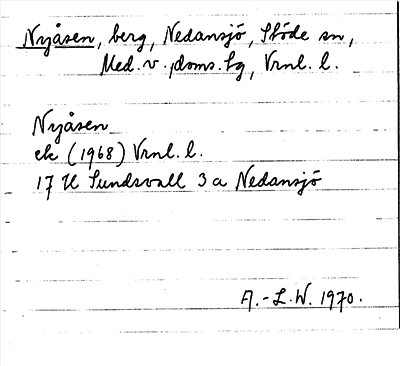 Nyåsen, berg, Nedansjö, Stöde sn,
Med. v. doms. tg, Vrnl. l.
Nyåsen
ek (1968) Vrnl. l.
17 H Sundsvall 3 a Nedansjö
A.-L.W. 1970.